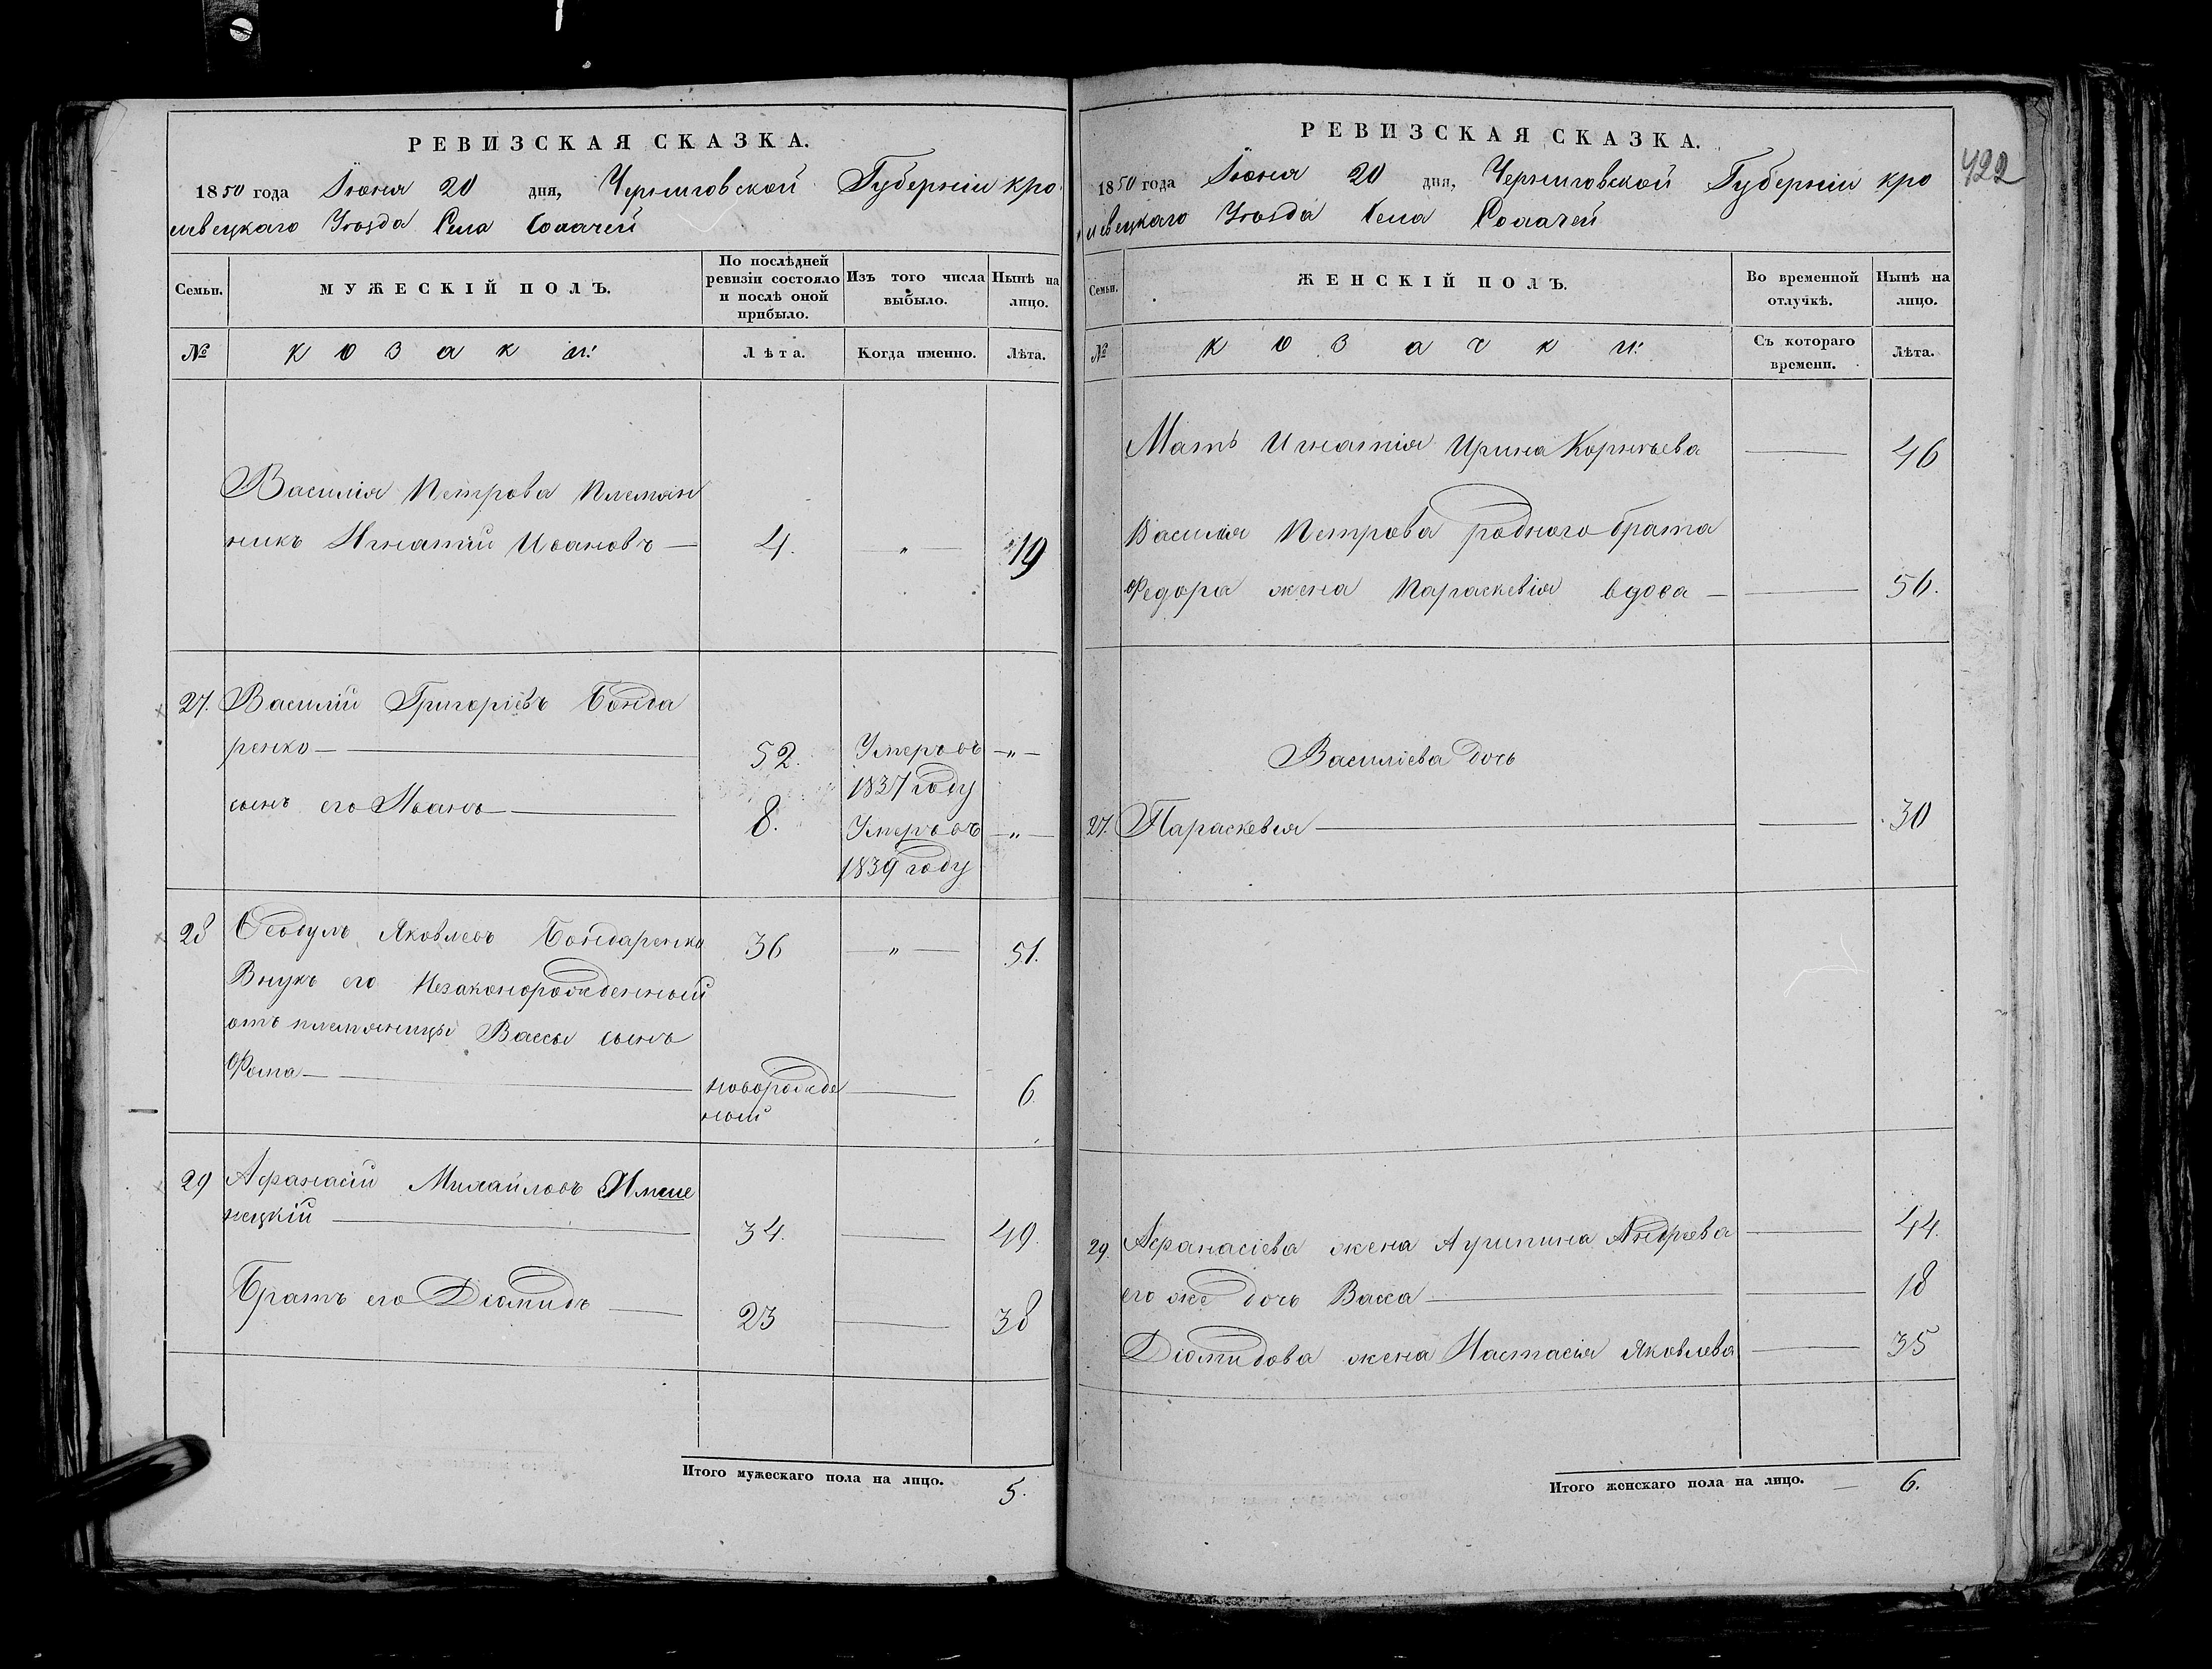 РЕВИЗСКАЯ СКАЗКА.
1850 года Іюня 20 дня, Черниговской Губерніи кро
левецкаго Уѣзда Села
Семьи.
МУЖЕСКІЙ ПОЛЪ.
По послѣдней ревизіи состояло и послѣ оной прибыло.
Изъ того числа выбыло.
Нынѣ на лицо.
№
козаки:
Лѣта.
Когда именно.
Лѣта.
Василія Петрова племян
никъ Игнатій Ивановъ — 4. — „ — 19
27. Василій Григоріевъ Бонда
ренко — 52. Умеръ въ — „ —
1837 году
сынъ его Иванъ — 8. Умеръ въ — „ —
1839 году
28 Феодулъ Яковлевъ Бондаренко 36 — „ — 51.
Внукъ его Незаконорожденный
отъ племяницы Вассы сынъ
Фома — новорожде — 6.
ный
29 Афанасій Михайловъ
нецкій — 34. — 49.
Братъ его Діомидъ — 23 — 38
Итого мужескаго пола на лицо. 5.
РЕВИЗСКАЯ СКАЗКА.
422
1850 года Іюня 20 дня, Черниговской Губерніи кро
левецкаго Уѣзда Села
Семьи.
ЖЕНСКІЙ ПОЛЪ.
Во временной отлучкѣ.
Нынѣ на лицо.
№
козачки:
Съ котораго времени.
Лѣта.
Мать Игнатія Ирина Корнѣева — 46
Василія Петрова родного брата
Федора жена Параскевія вдова — — 56.
Василіева дочь
27. Параскевія — — 30
29. Афанасіева жена Агрипина Андрѣева — 44.
его же дочь Васса — — 18
Діомидова жена Настасія Яковлева — 35
Итого женскаго пола на лицо. — 6.